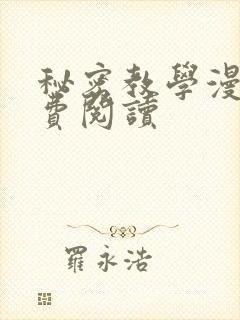 秘密教學漫
費閱讀
羅永浩